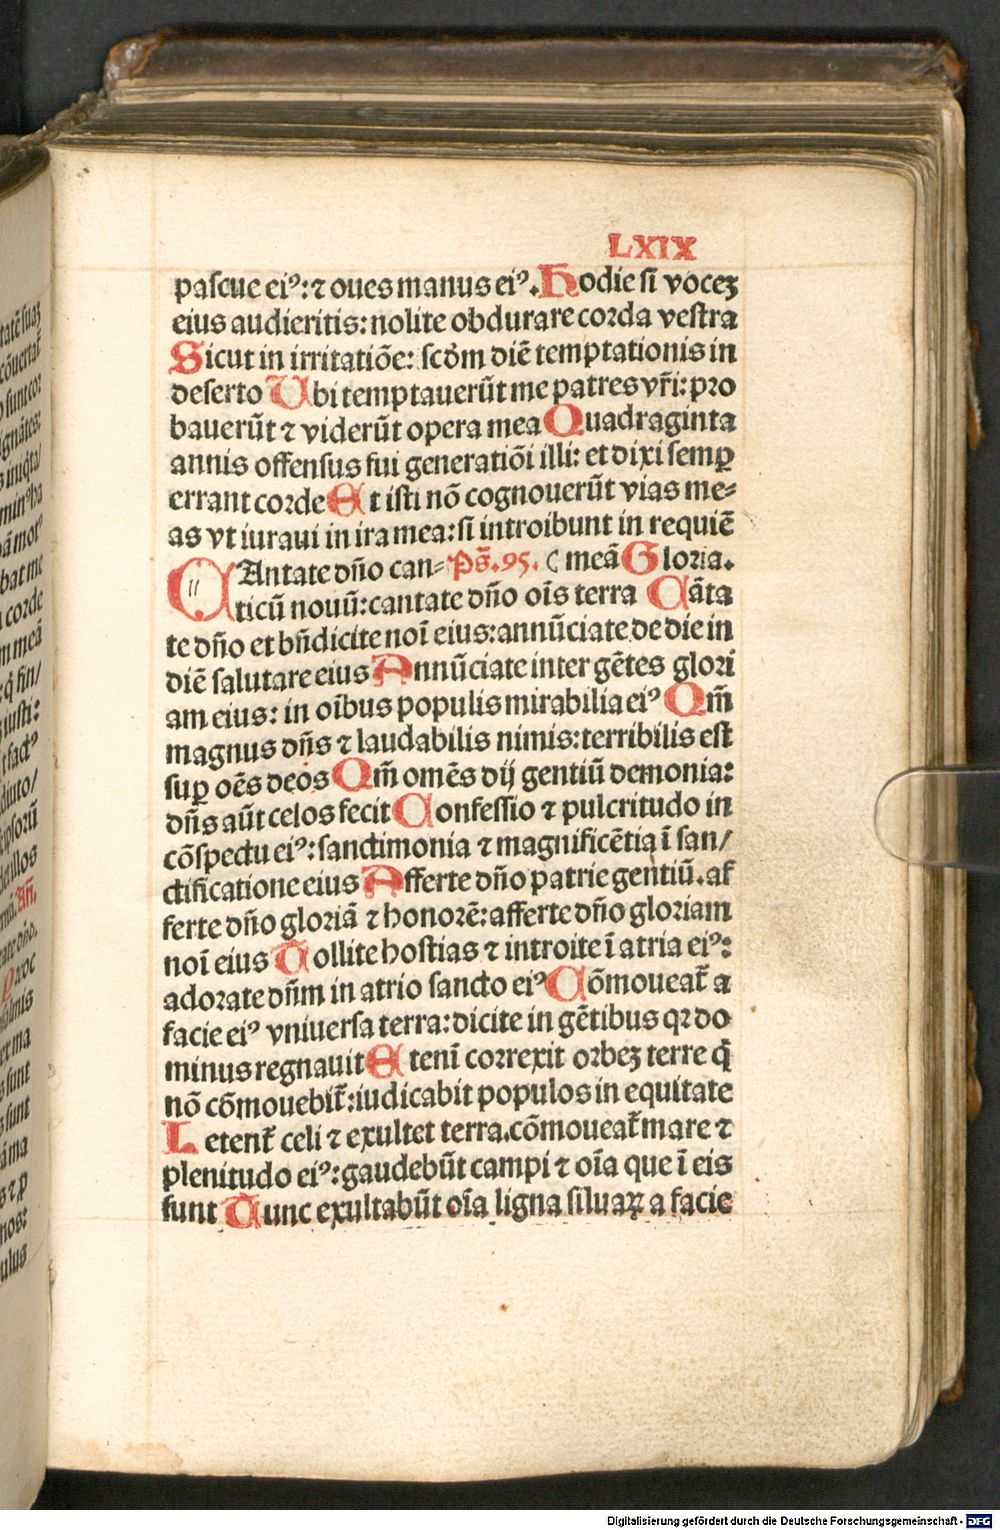 LXIX
pascue eiꝰ: ⁊ oues manus eiꝰ. Hodie si vocez
eius audieritis: nolite obdurare corda vestra
Sicut in irritatiõe: scd̃m diẽ temptationis in
deserto Ubi temptauerũt me patres vr̃i: pro
bauerũt ⁊ viderũt opera mea Quadraginta
annis offensus fui generatiõi illi: et dixi semꝑ
errant corde Et isti nõ cognouerũt vias me⸗
as vt iuraui in ira mea: si introibunt in requiẽ
CAntate dño can⸗ Ps̃. 95. ( meã Gloria.
ticũ nouũ: cantate dño oĩs terra Cãta
te dño et bñdicite noĩ eius: annũciate de die in
diẽ salutare eius Annũciate inter gẽtes glori
am eius: in oĩbus populis mirabilia eiꝰ Qm̃
magnus dñs ⁊ laudabilis nimis: terribilis est
suꝑ oẽs deos Qm̃ omẽs dij gentiũ demonia:
dñs aũt celos fecit Confessio ⁊ pulcritudo in
cõspectu eiꝰ: sanctimonia ⁊ magnificẽtia ĩ san/
ctificatione eius Afferte dño patrie gentiũ. af
ferte dño gloriã ⁊ honorẽ: afferte dño gloriam
noĩ eius Tollite hostias ⁊ introite ĩ atria eiꝰ:
adorate dñm in atrio sancto eiꝰ Cõmoueat̃ a
facie eiꝰ vniuersa terra: dicite in gẽtibus qꝛ do
minus regnauit Etenĩ correxit orbez terre q̃
nõ cõmouebit̃: iudicabit populos in equitate
Letent̃ celi ⁊ exultet terra. cõmoueat̃ mare ⁊
plenitudo eiꝰ: gaudebũt campi ⁊ oĩa que ĩ eis
sunt Tunc exultabũt oĩa ligna siluaꝝ a facie
tatẽ suaz
cõuertat̃
sunt cor
ignãtes:
corde
m meã
iusti:
factꝰ
ipsorũ
illos
Añ.
sunt
sunt
nos:
Digitalisierung gefördert durch die Deutsche Forschungsgemeinschaft - DFG